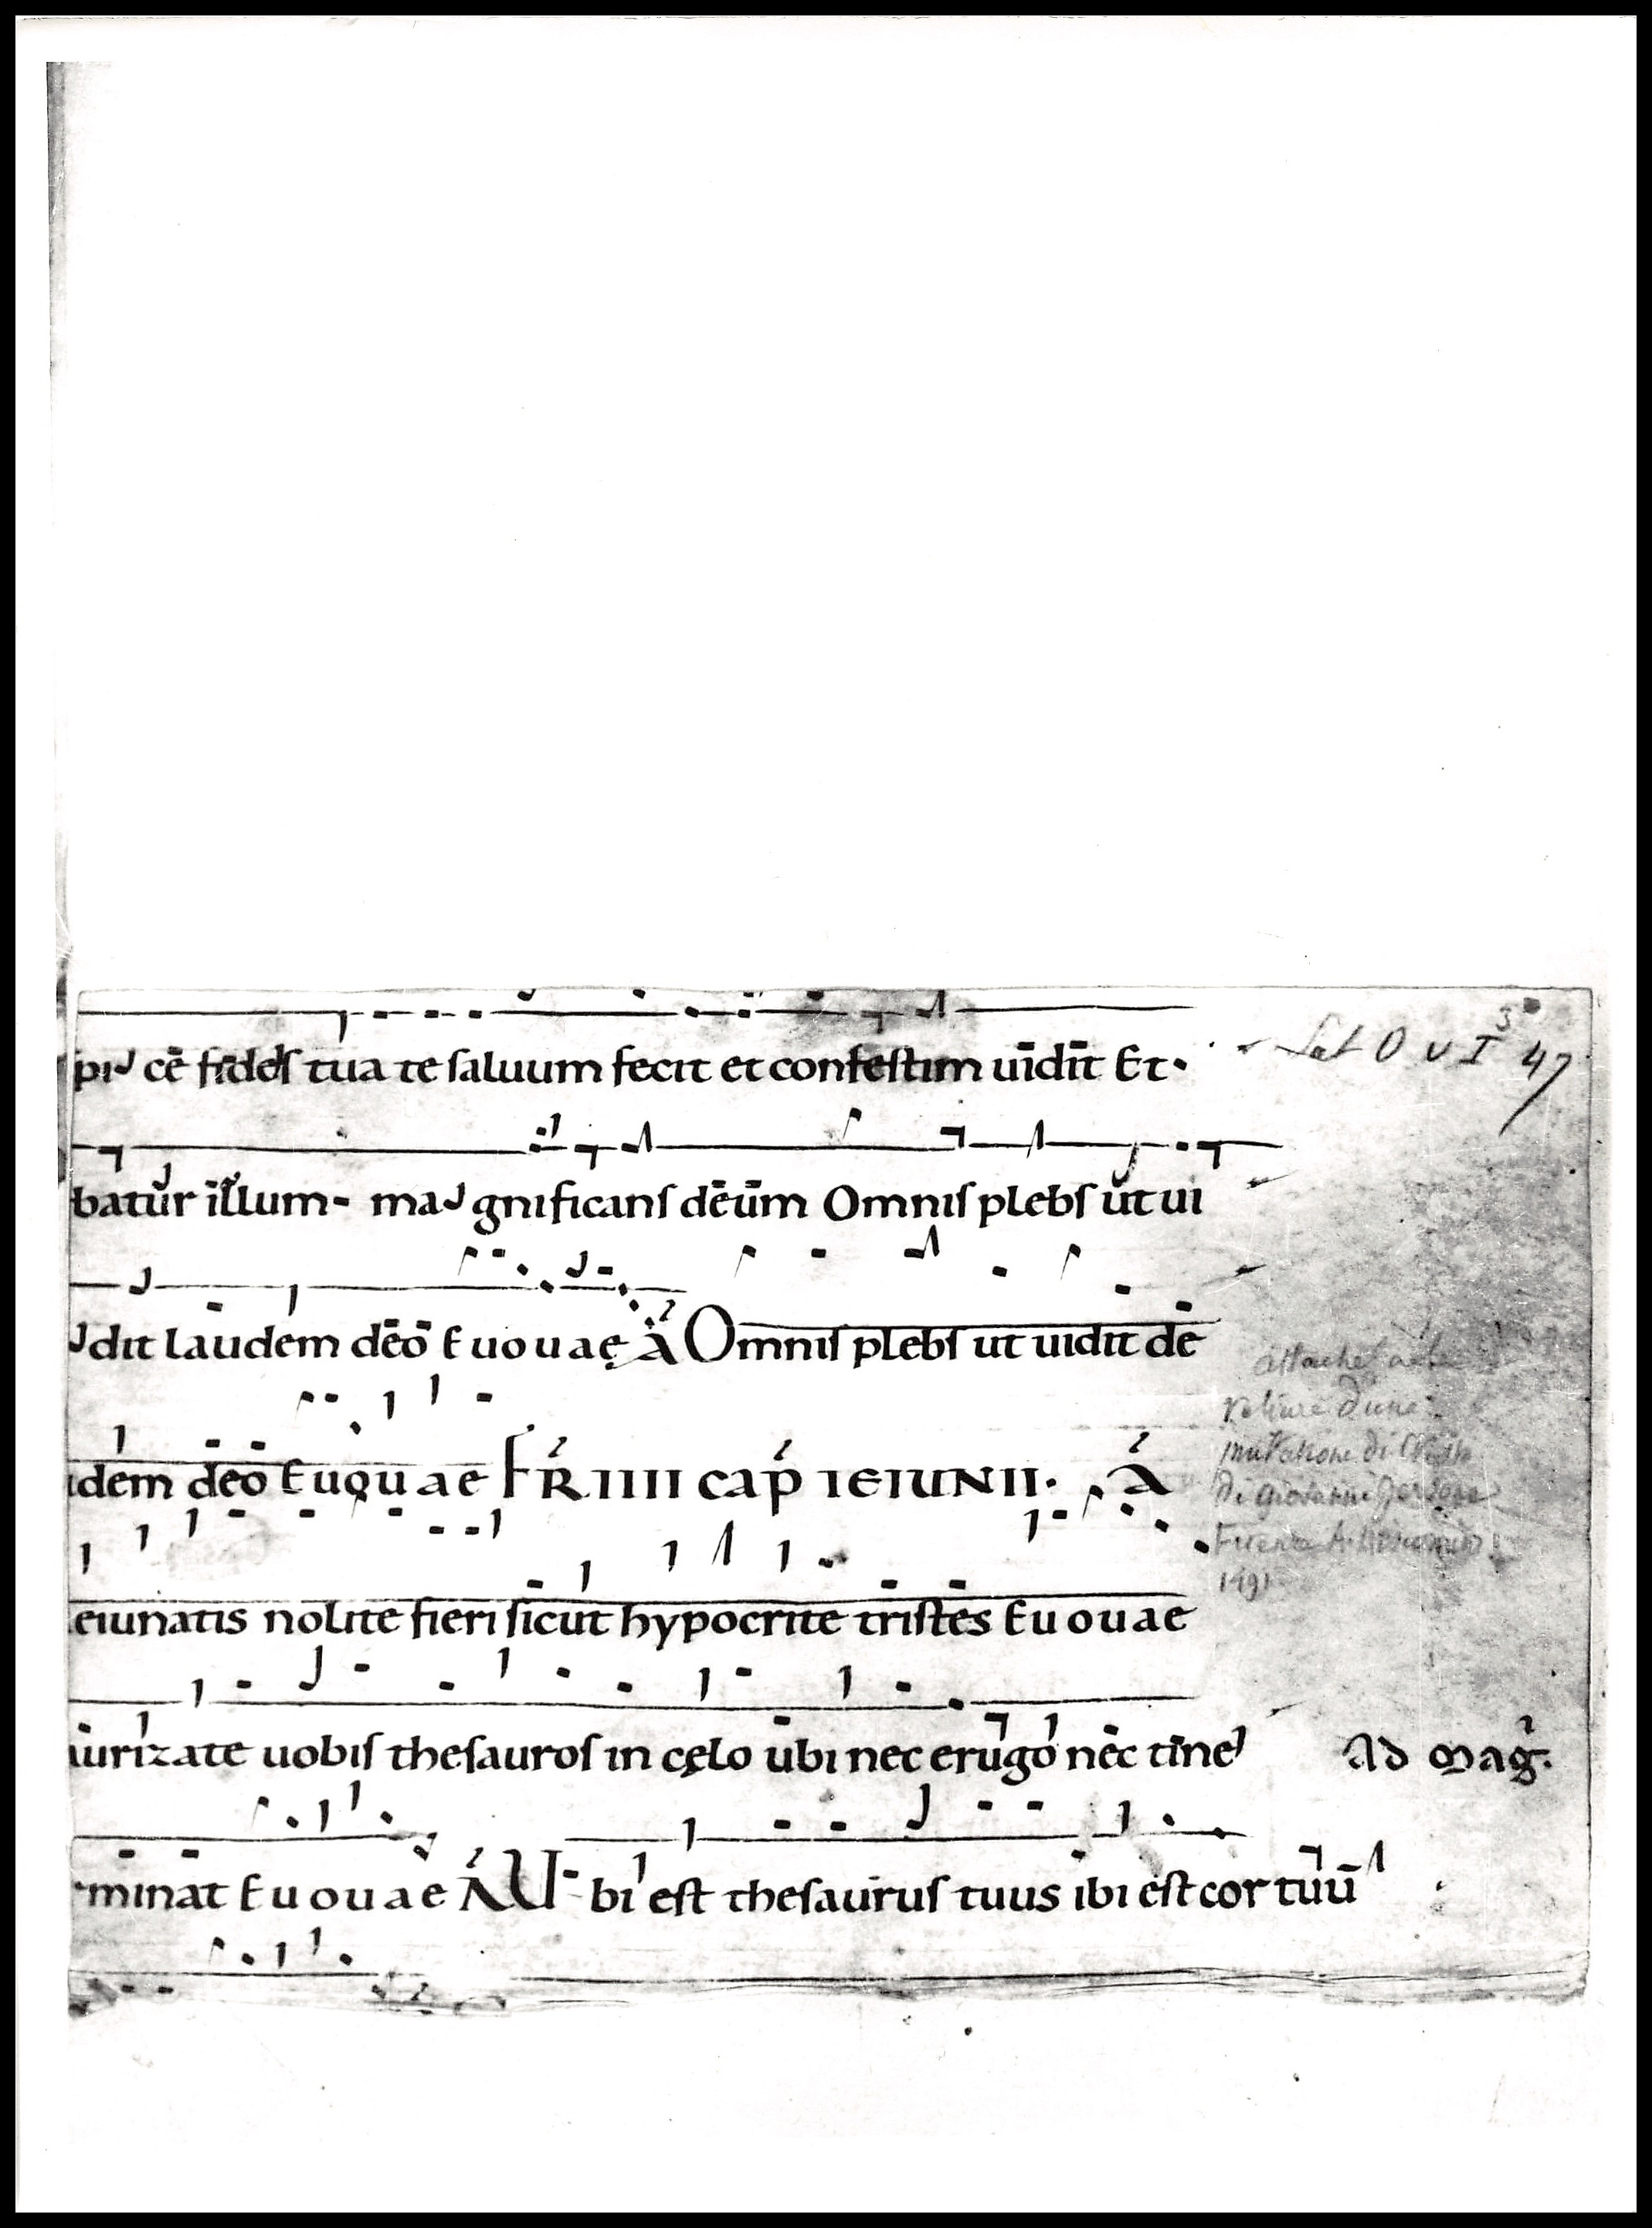 pi cē fides tua te saluum fecit et confestim uidit Et·
Lat O v I 3 47
batur illum- ma gnificans deum Omnis plebs ut ui
dit laudem deo Euouae A Omnis plebs ut uidit de
dem deo Euouae FR IIII cap IEIUNII· A
attaché
Reliure d'une
di Giovanni
1491
eiunatis nolite fieri sicut hypocrite tristes Euouae
urizate uobis thesauros in cęlo ubi nec erugo nec tine
ad mag.
minat Euouae A U bi est thesaurus tuus ibi est cor tuū